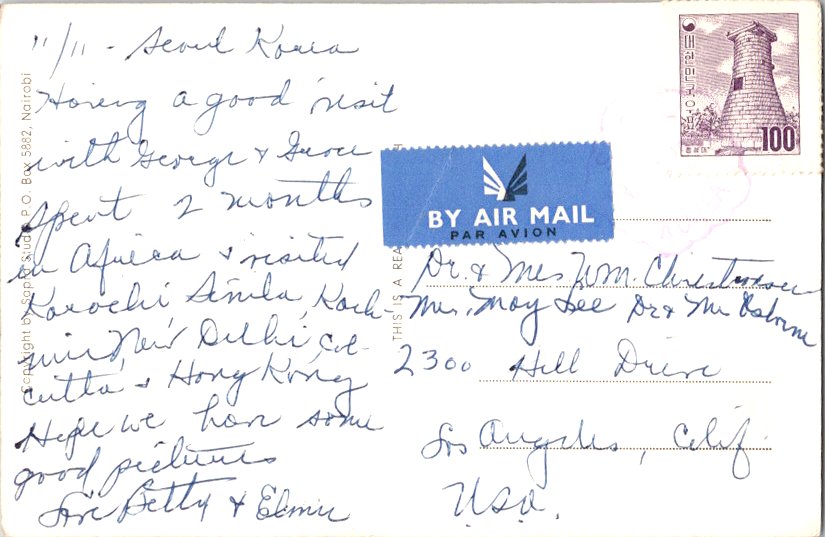 11/11 - Seoul Korea
Having a good visit
with George & Grace
Spent 2 months
in Africa & visited
Karachi, Simla, Kash-
mir, New Delhi, Cal-
cutta & Hong Kong
Hope we have some
good pictures
Love Betty & Elmer
Copyright by Sapra Studio P.O. Box 5882, Nairobi
THIS IS A REA
H
BY AIR MAIL
PAR AVION
대한민국우표
100
첨성대
Dr. & Mrs Wm.
Mrs. May Lee Dr & Mr Osborne
2300 Hill Drive
Los Angeles, Calif.
U.S.A.